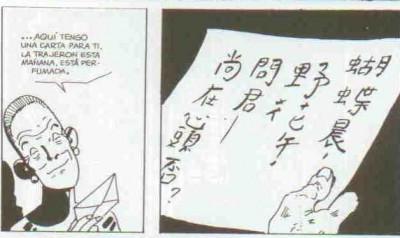 ...AQUÍ TENGO
UNA CARTA PARA TI.
LA TRAJERON ESTA
MAÑANA, ESTÁ PER-
FUMADA.
蝴蝶晨,
野花午,
問君
尚在心頭否?